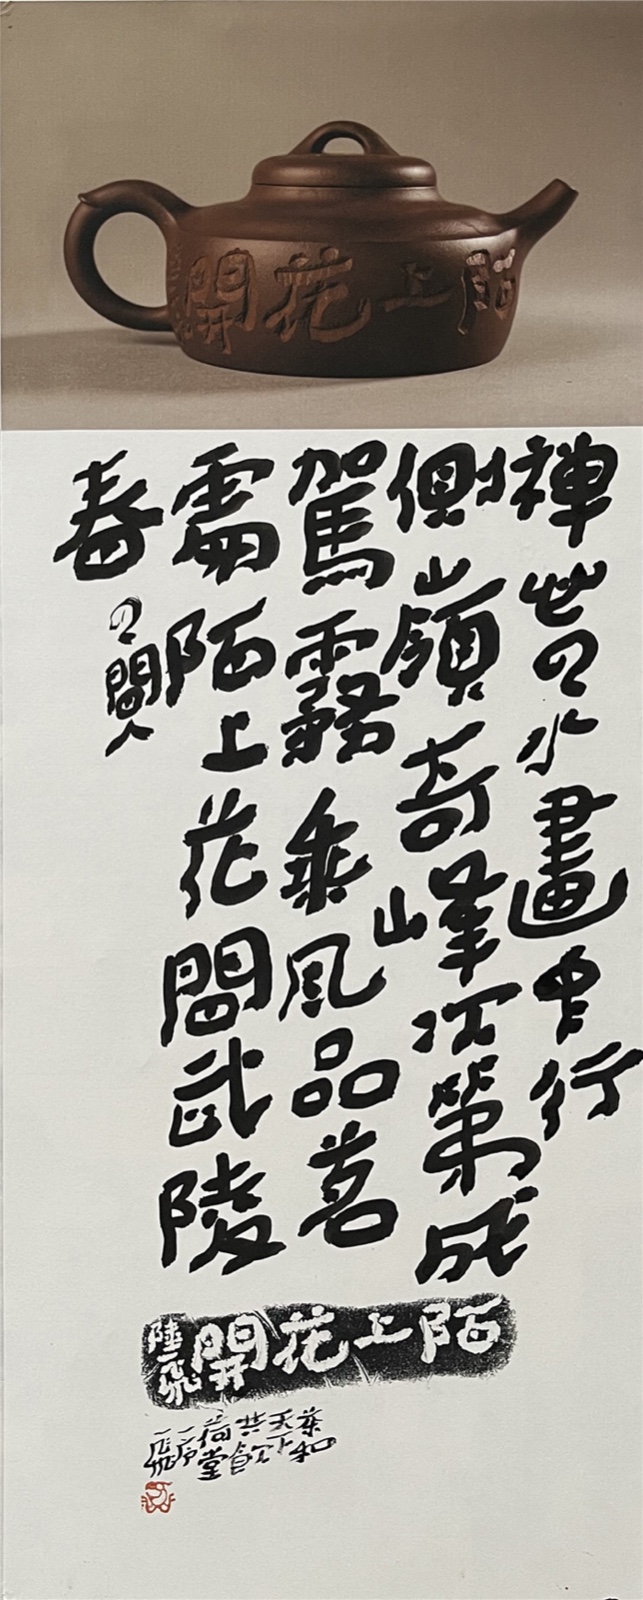 陌上花開
禅水畫中行
側嶺奇峰次第成
駕霧乘風品茗
處陌上花開武陵
春
陌上花開
陸一飛
茶和
天下
共飲
荷堂
一飛